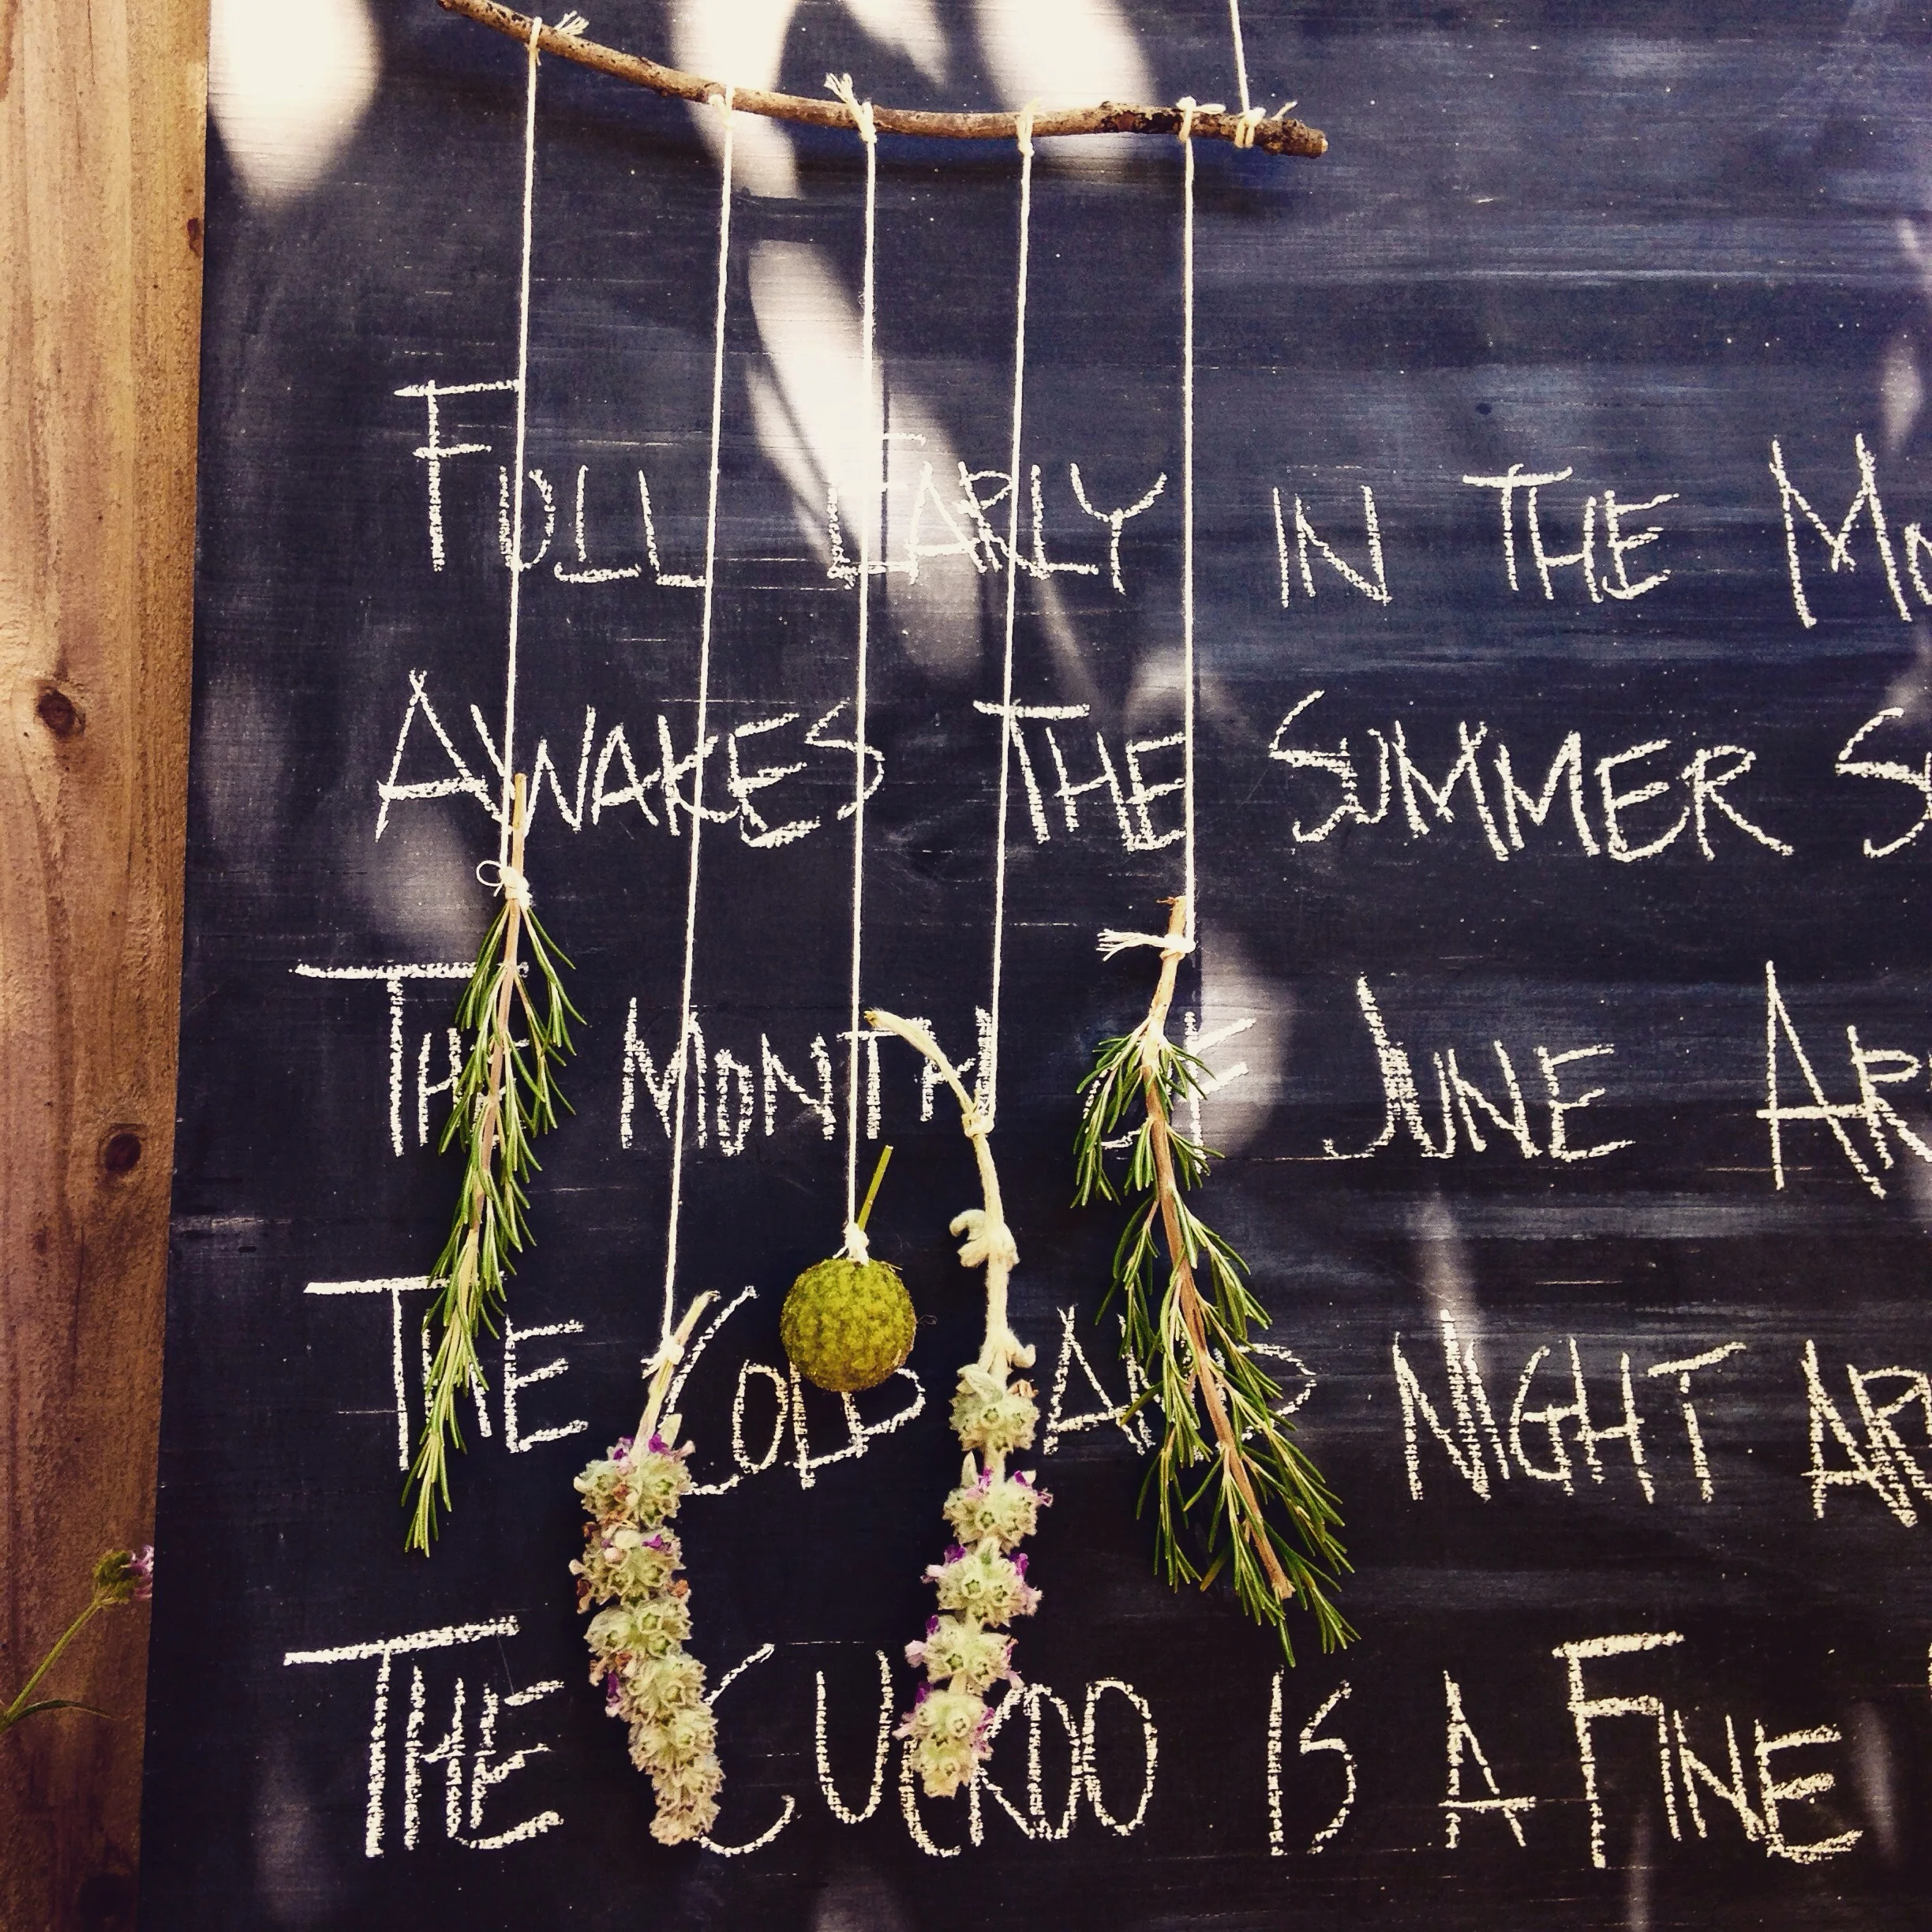 FULL EARLY IN THE
AWAKES THE SUMMER
THE MONTH OF JUNE
THE COLD AND NIGHT
THE CUCKOO IS A FINE